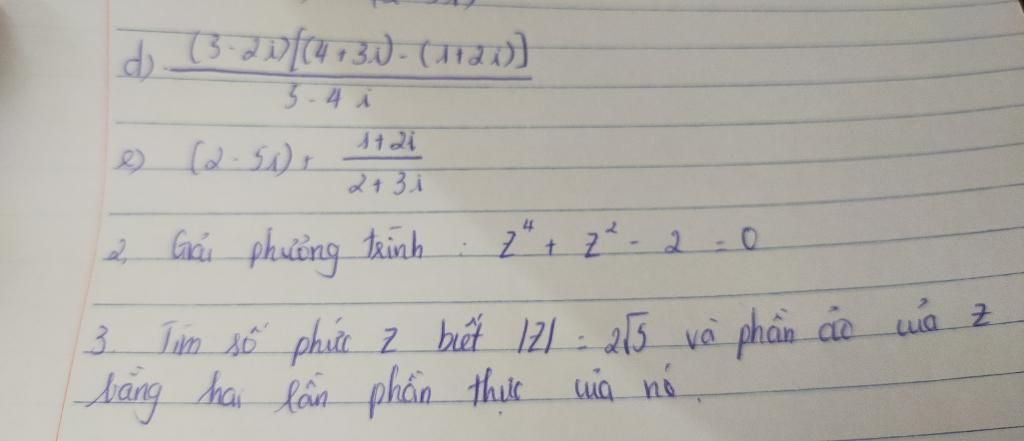 d) \frac{(3-2i)[(4+3i)-(1+2i)]}{3-4i}
e) (2-5i)+ \frac{1+2i}{2+3i}
2, Giải phương trình : z^4 + z^2 - 2 = 0
3. Tìm số phức z biết |z| = 2√5 và phần ảo của z
bằng hai lần phần thực của nó.